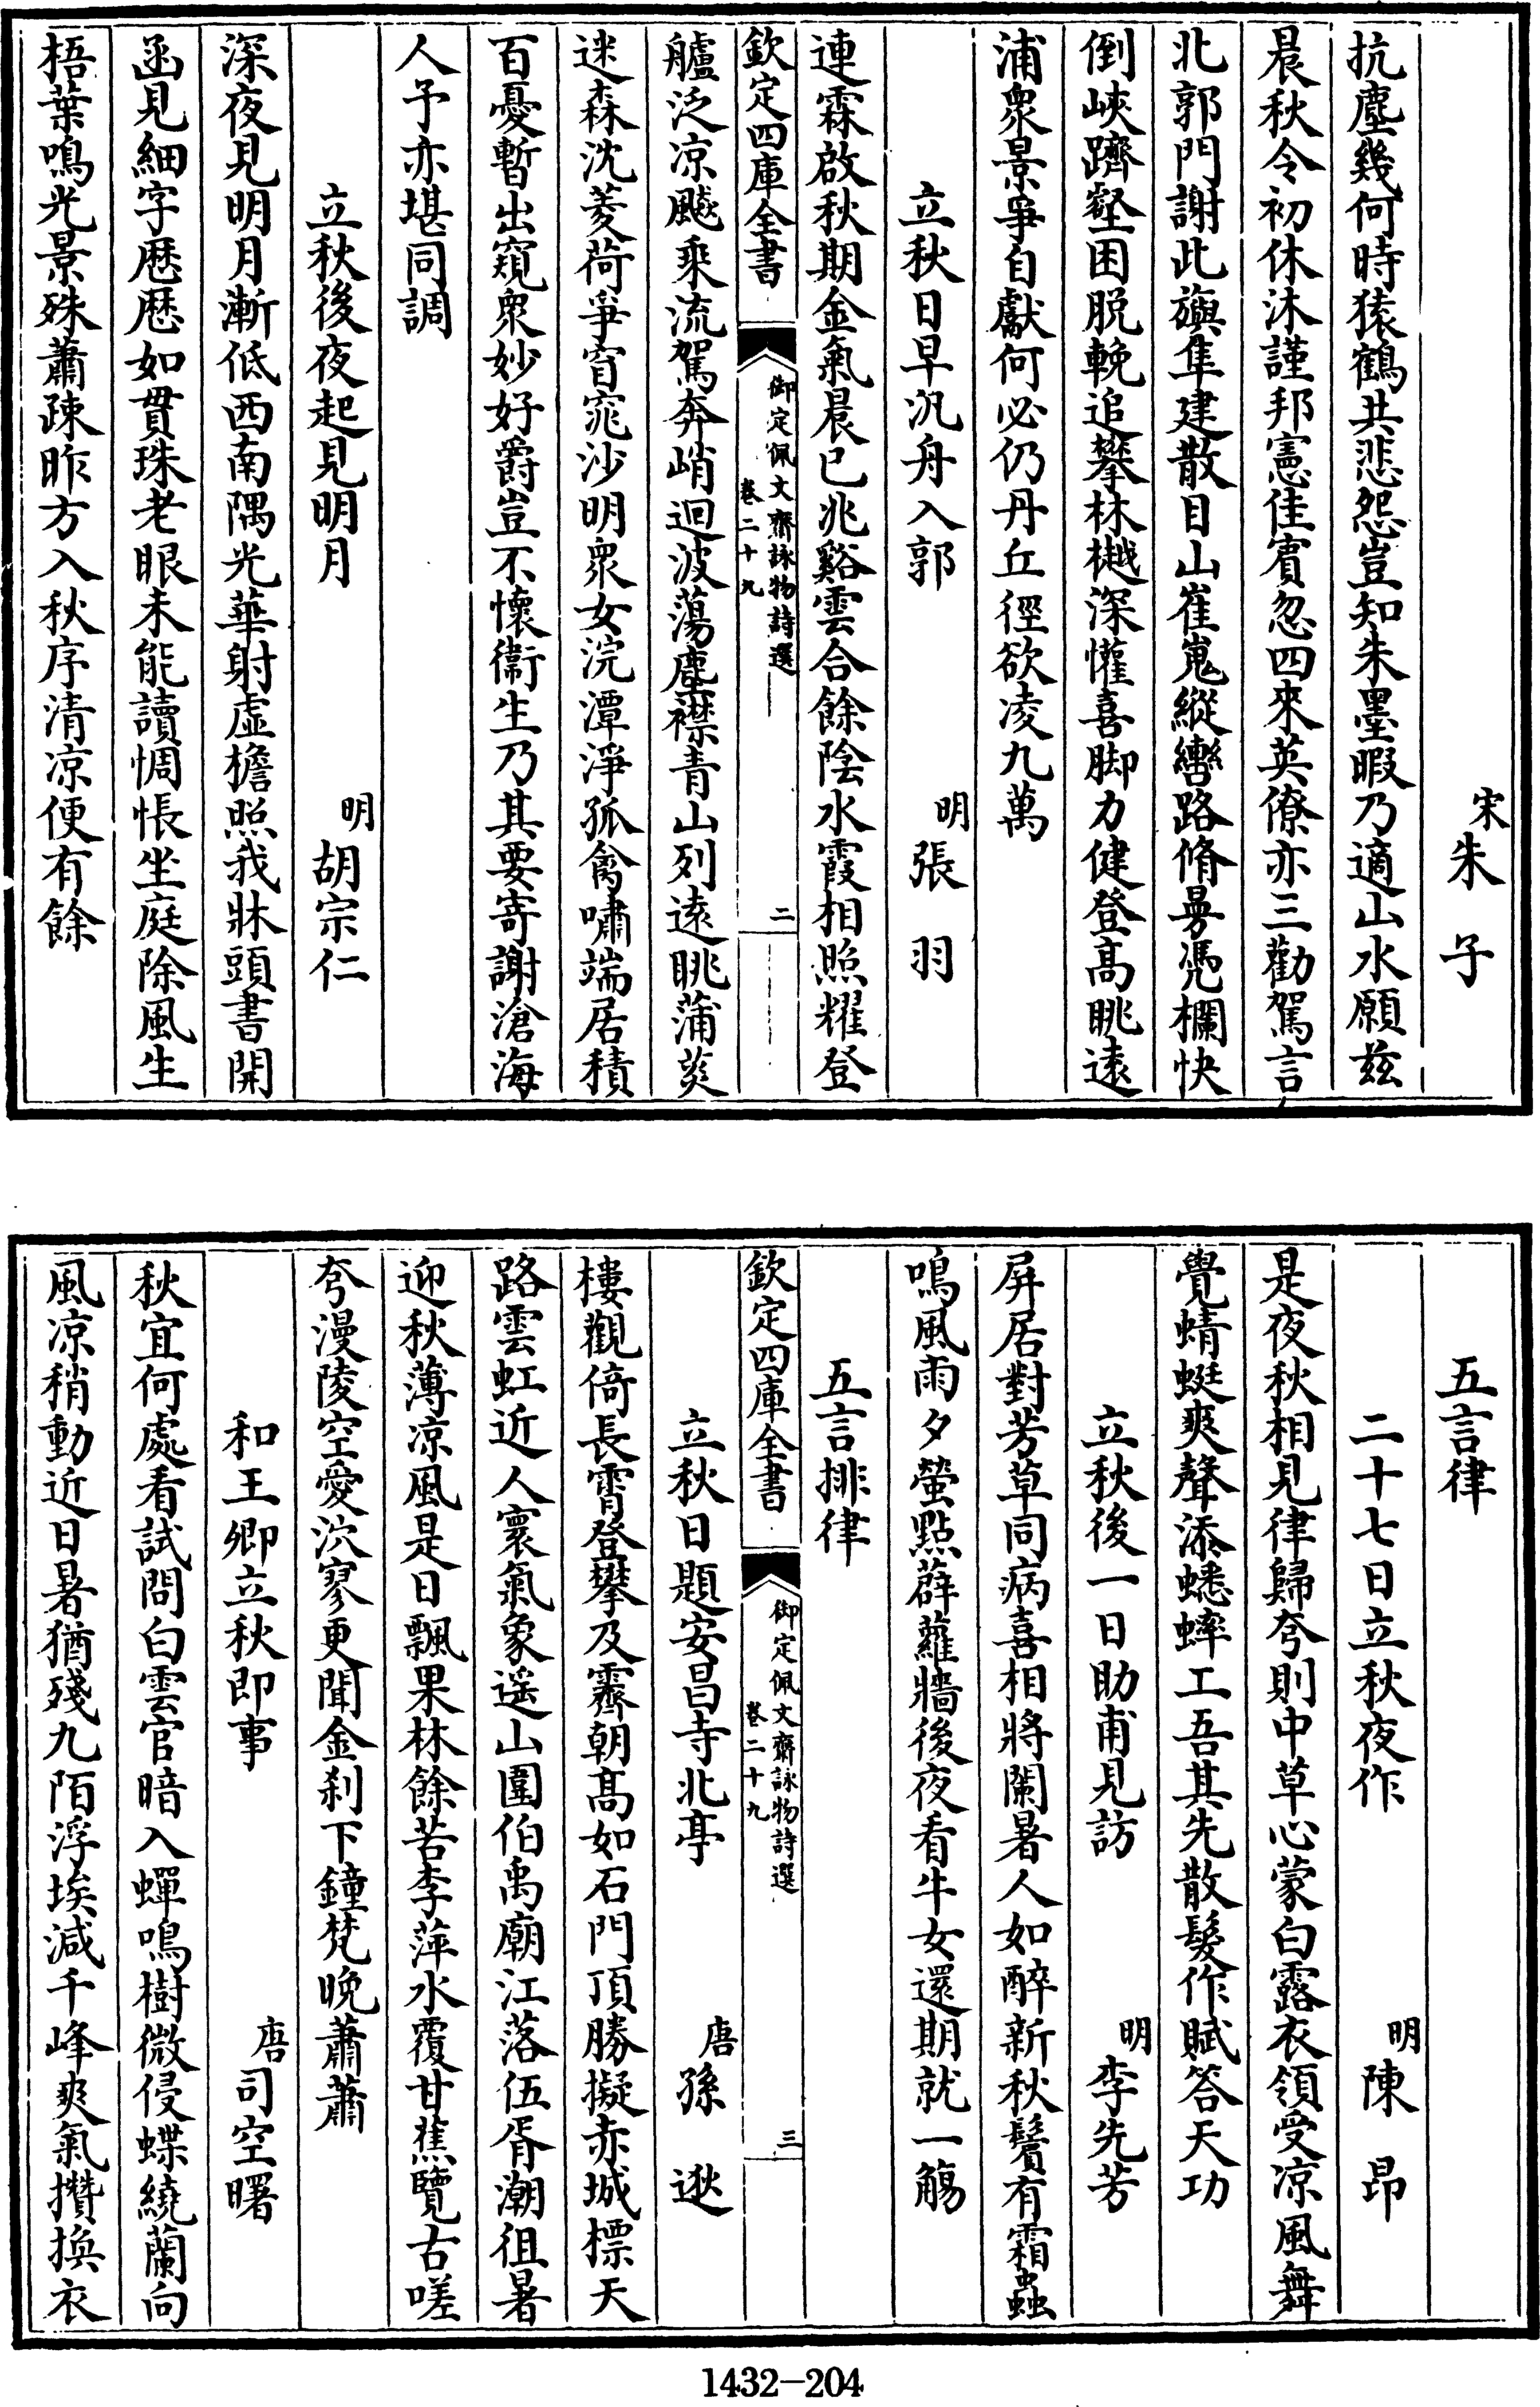 宋朱子
抗塵幾何時猿鶴共悲怨豈知朱墨暇乃適山水願茲
晨秋令初休沐謹邦憲佳賓忽四來英僚亦三勸駕言
北郭門謝此旟隼建散目山崔嵬縱轡路脩曼凭欄快
倒峽躋壑困脫輓追攀林樾深懽喜脚力健登高眺遠
浦衆景爭自獻何必仍丹丘徑欲凌九萬
立秋日早汎舟入郭　明張羽
連霖啟秋期金氣晨已兆谿雲合餘陰水霞相照耀登
欽定四庫全書　御定佩文齋詠物詩選　卷二十九　二
艫泛凉颷乘流駕奔峭迴波蕩塵襟青山列遠眺蒲莢
迷森沈菱荷爭窅窕沙明衆女浣潭淨孤禽嘯端居積
百憂暫出窺衆妙好爵豈不懷衞生乃其要寄謝滄海
人予亦堪同調
立秋後夜起見明月　明胡宗仁
深夜見明月漸低西南隅光華射虛檐照我牀頭書開
函見細字歷歷如貫珠老眼未能讀惆悵坐庭除風生
梧葉鳴光景殊蕭疎昨方入秋序清凉便有餘
五言律
二十七日立秋夜作　明陳昂
是夜秋相見律歸夸則中草心蒙白露衣領受凉風舞
覺蜻蜓爽聲添蟋蟀工吾其先散髮作賦答天功
立秋後一日助甫見訪　明李先芳
屏居對芳草同病喜相將闌暑人如醉新秋鬢有霜蟲
鳴風雨夕螢點薜蘿牆後夜看牛女還期就一觴
五言排律
欽定四庫全書　御定佩文齋詠物詩選　卷二十九　三
立秋日題安昌寺北亭　唐孫逖
樓觀倚長霄登攀及霽朝高如石門頂勝擬赤城標天
路雲虹近人寰氣象遥山圍伯禹廟江落伍胥潮徂暑
迎秋薄凉風是日飄果林餘苦李萍水覆甘蕉覽古嗟
夸漫陵空愛泬寥更聞金刹下鐘梵晚蕭蕭
和王卿立秋即事　唐司空曙
秋宜何處看試問白雲官暗入蟬鳴樹微侵蝶繞蘭向
風凉稍動近日暑猶殘九陌浮埃減千峰爽氣攢換衣
1432-204